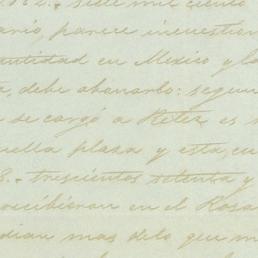 siete mil ciento
parece incuestion
cantidad en Mexico y lo
debe abonarlo: segun
se cargó a Keter es
plaza y esta, cu
8.- trescientos setenta y
recibieran en el Rosa
mas delo que m